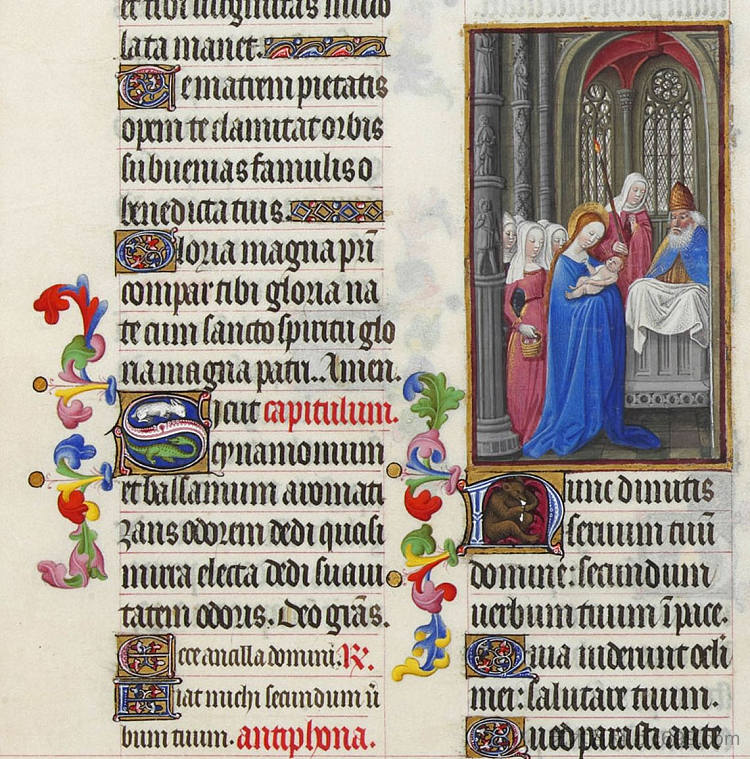 et tibi virginitas inuio
lata manet.
Te matrem pietatis
opem te clamitat orbis
subuenias famulis o
benedicta tuis.
Gloria magna pr̄i
compar tibi gloria na
te cum sancto spiritu glo
ria magna patri.. Amen.
Sicut capitulum.
cynamomum
et balsamum aromati
zans odorem dedi quasi
mirra electa dedi suaui
tatem odoris. Deo gr̄as.
Ecce ancilla domini. R.
Fiat michi secundum ū
bum tuum. antiphona.
Nunc dimitis
seruum tuū
domine: secundum
uerbum tuum ī pace.
Quia uiderunt oc̄li
mei: salutare tuum.
Quod parasti ante